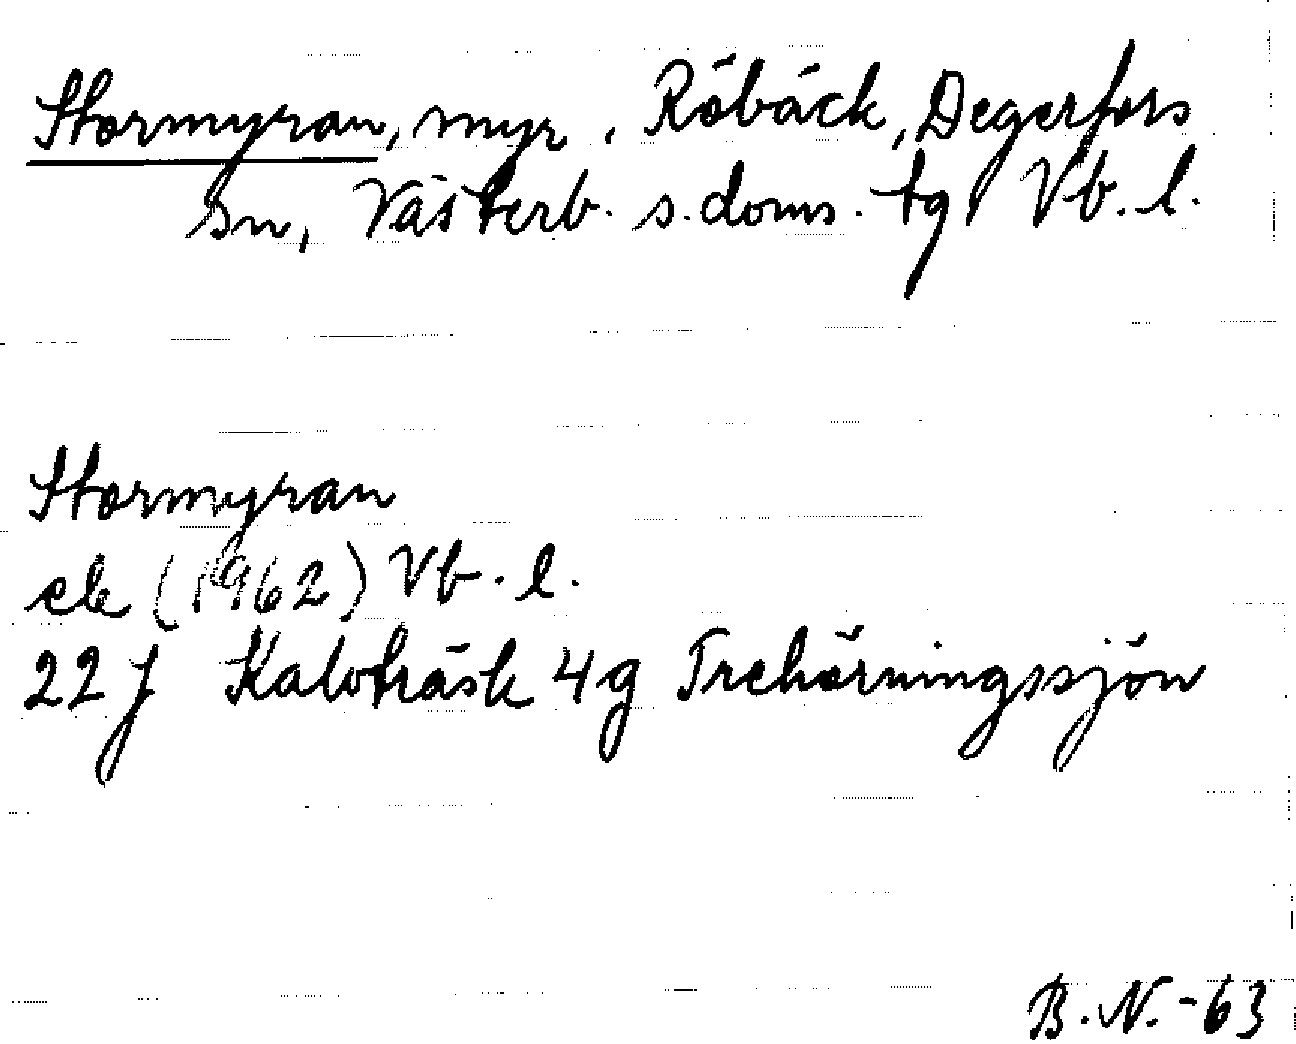 Stormyran, myr, Röbäck, Degerfors
sn, Västerb. s. doms. tg Vb. l.
Stormyran
ek (1962) Vb. l.
22 J Kalvträsk 4 g Trehörningssjön
B. N. -63